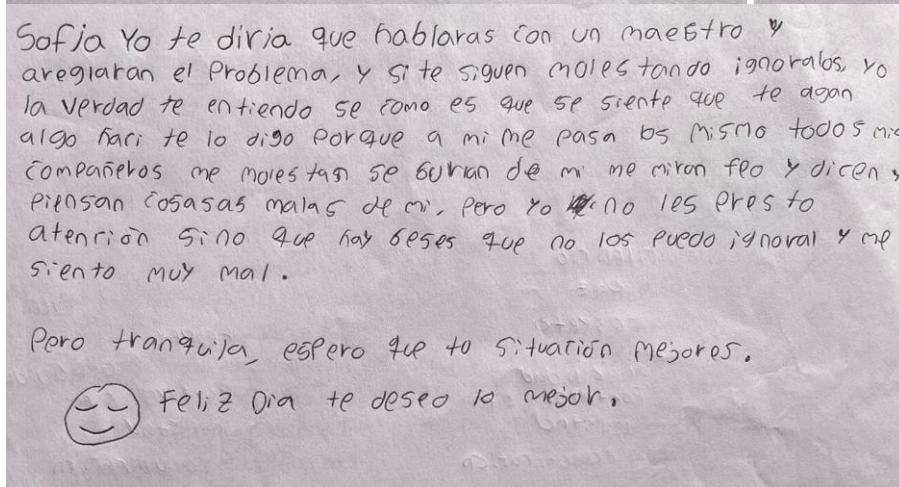 Sofia Yo te diria que hablaras con un maestro y
areglaran el Problema, y si te siguen molestando ignoralos, yo
la verdad te entiendo se como es que se siente que te agan
algo haci te lo digo Porque a mi me pasa los mismo todos mis
compañeros me molestan se burlan de mi me miran feo y dicen y
Piensan cosasas malas de mi, Pero Yo no les Presto
atención sino que hay beses que no los puedo ignoral y me
siento muy mal.
Pero tranquila, espero que tu situación mejores.
Feliz Dia te deseo lo mejor.